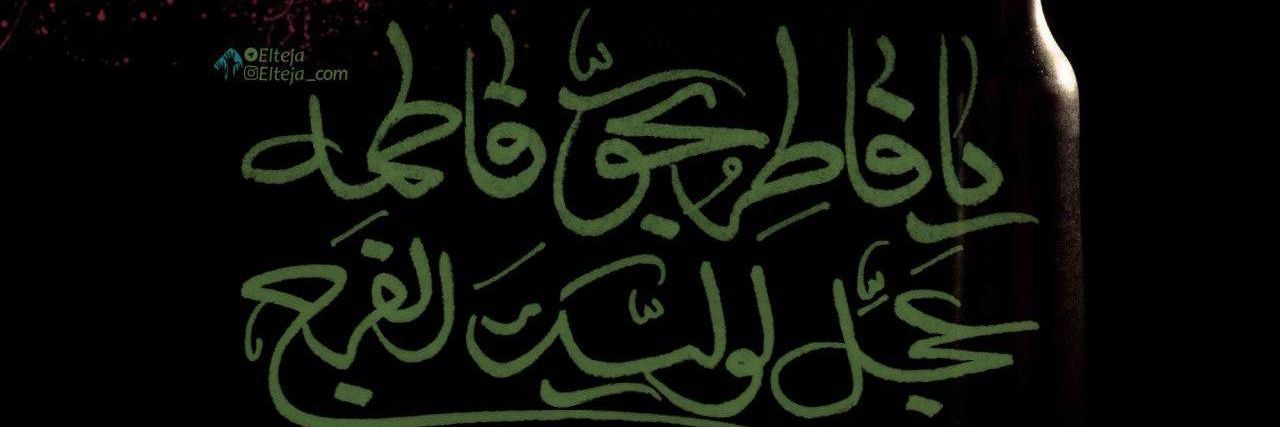 Elteja
Elteja_com
یا فاطِرُ بحَقّ فاطمه
عَجِّل لولیّکَ الفرَج